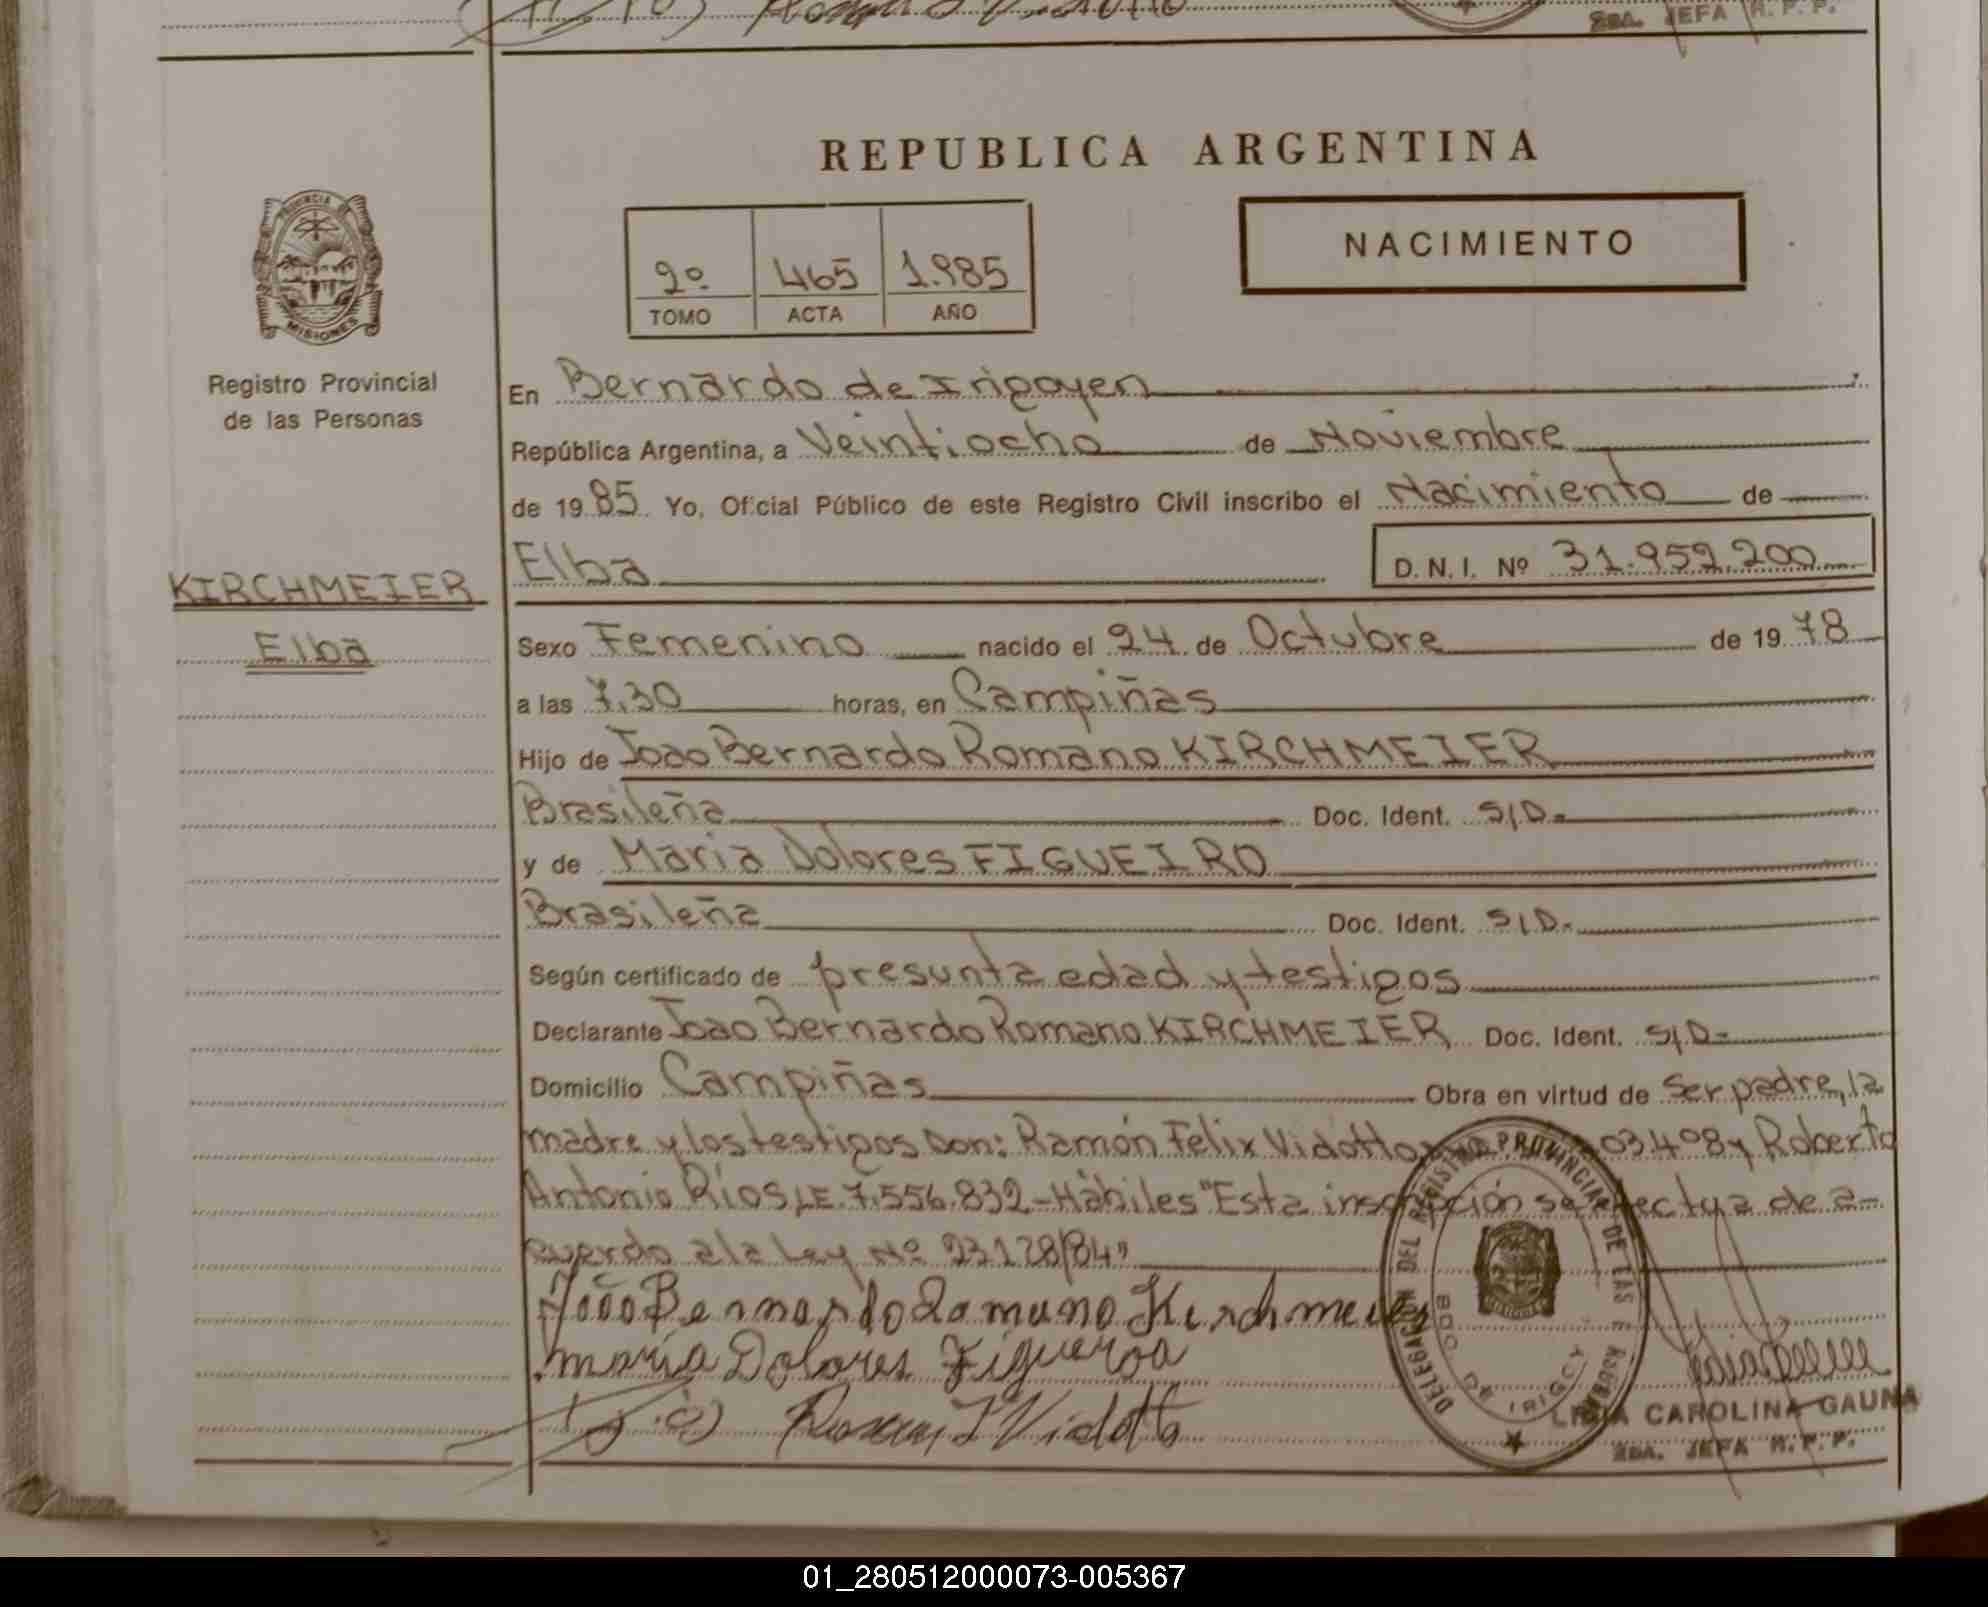 2DA. JEFA R. P. P.
REPUBLICA ARGENTINA
PROVINCIA DE
MISIONES
Registro Provincial
de las Personas
2º 465 1.985
TOMO ACTA AÑO
NACIMIENTO
KIRCHMEIER
Elba
En Bernardo de Irigoyen
República Argentina, a Veintiocho de Noviembre
de 1985 Yo, Oficial Público de este Registro Civil inscribo el Nacimiento de
Elba D. N. I. Nº 31.959.200
Sexo Femenino nacido el 24 de Octubre de 1978
a las 7,30 horas, en Campiñas
Hijo de Joao Bernardo Romano KIRCHMEIER
Brasileña Doc. Ident. S/D-
y de Maria Dolores FIGUEIRO
Brasileña Doc. Ident. S/D-
Según certificado de presunta edad y testigos
Declarante Joao Bernardo Romano KIRCHMEIER Doc. Ident. S/D-
Domicilio Campiñas Obra en virtud de Ser padre, la
madre y los testigos Don: Ramón Felix Vidotto 03.408 y Roberto
Antonio Ríos, LE. 7.556.832-Hábiles "Esta inscripción se efectua de a-
cuerdo a la Ley Nº 23128/84"
João Bernardo Romano Kirchmeier
maria Dolores Figueroa
Ramon F Vidotto
DELEGACIÓN DEL REGISTRO PROVINCIAL DE LAS PERSONAS
BDO DE IRIGOY
LIDIA CAROLINA GAUNA
2DA. JEFA R. P. P.
01_280512000073-005367